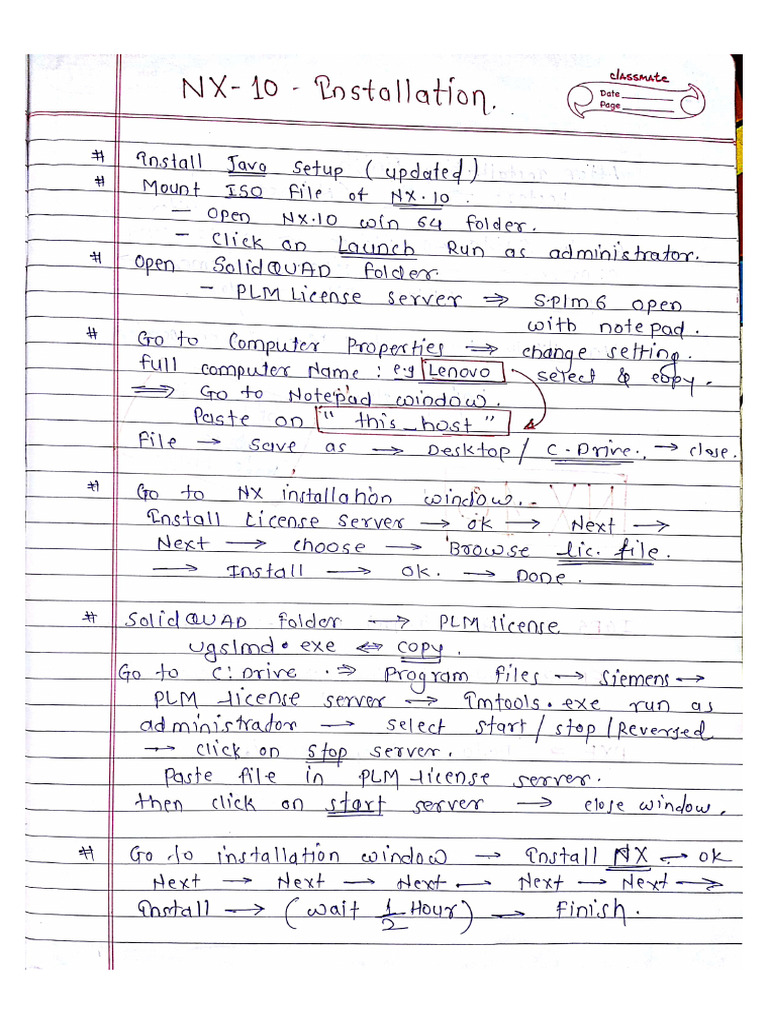 classmate
NX-10 - Installation.
Date
Page
# Install Java Setup (updated)
# Mount ISO file of NX-10.
- Open NX.10 win 64 folder.
- Click on Launch Run as administrator.
# Open SolidQUAD folder.
- PLM License server ⇒ Splm6 open
with notepad.
# Go to Computer Properties ⇒ change setting.
full computer Name : eg Lenovo select & copy.
⇒ Go to Notepad window.
Paste on "this_host"
File → Save as → Desktop / C-Drive. → close.
# Go to NX installation window.
Install License server → ok → Next →
Next → choose → Browse lic. file.
→ Install → ok. → Done.
# SolidQUAD folder → PLM license
ugslmd.exe ⇔ copy.
Go to C:Drive ⇒ Program files → Siemens →
PLM license server → lmtools.exe run as
administrator → select start/stop/Reversed
→ click on stop server.
Paste file in PLM license server.
then click on start server → close window.
# Go to installation window → Install NX → ok
Next → Next → Next → Next → Next →
Install → (wait 1/2 Hour) → Finish.